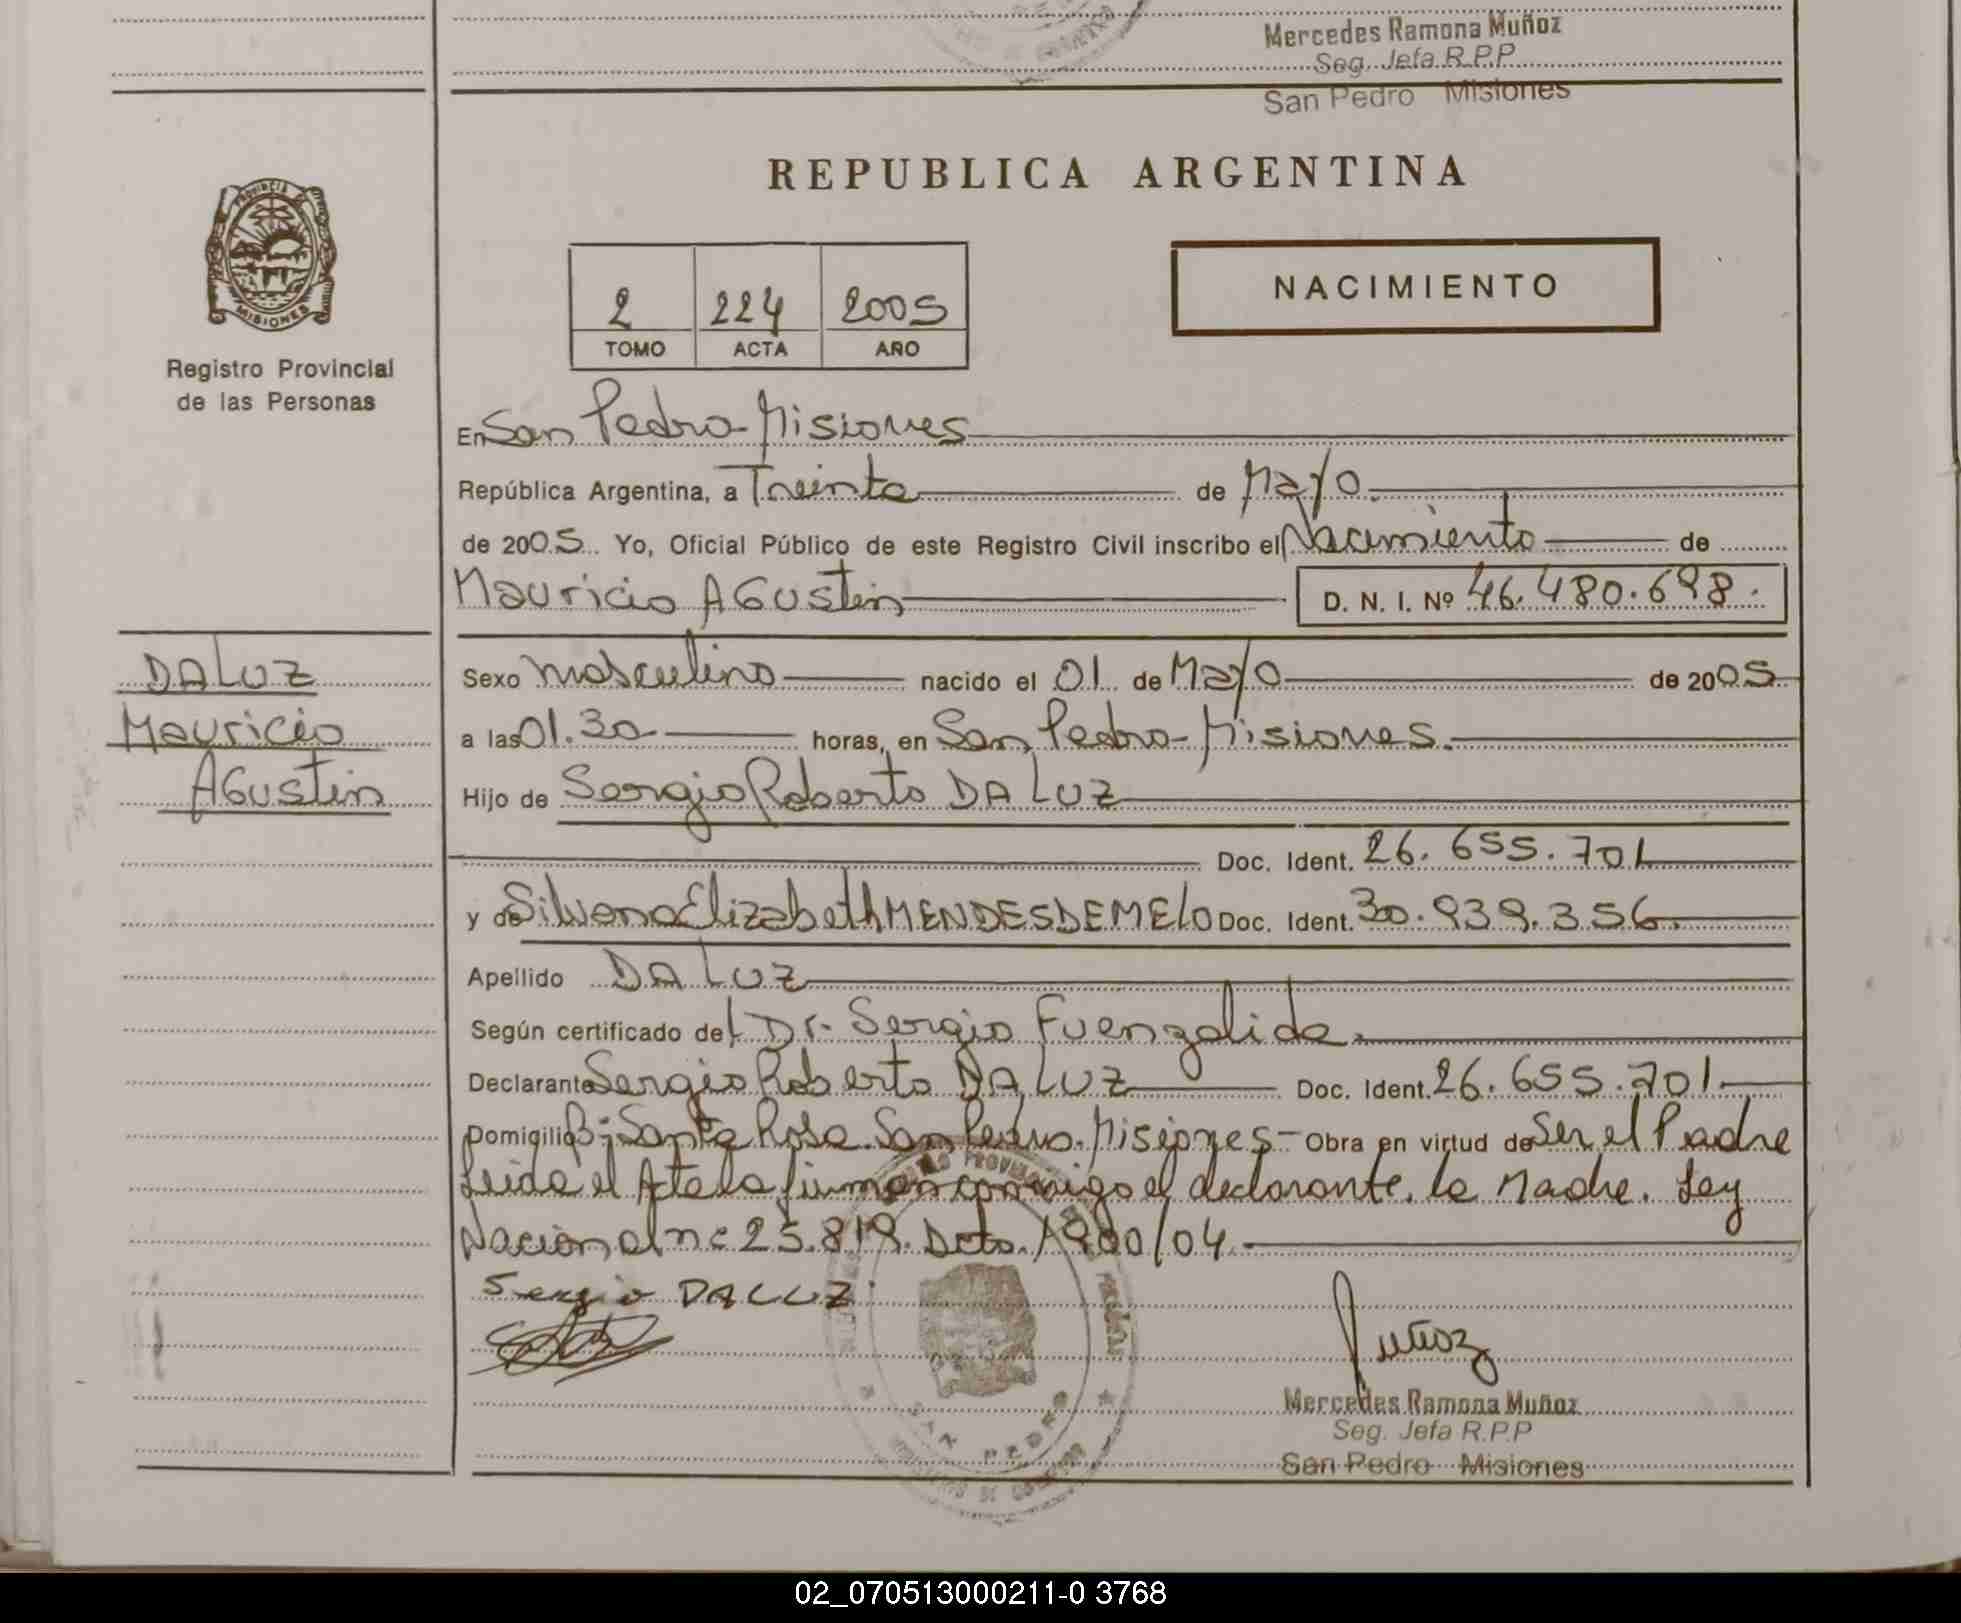 Mercedes Ramona Muñoz
Seg. Jefa R.P.P
San Pedro Misiones
REPUBLICA ARGENTINA
PROVINCIA DE
MISIONES
Registro Provincial
de las Personas
2 224 2005
TOMO ACTA AÑO
NACIMIENTO
En San Pedro - Misiones
República Argentina, a Treinta de Mayo.
de 2005. Yo, Oficial Público de este Registro Civil inscribo el Nacimiento de
Mauricio Agustin D. N. I. Nº 46.480.698.
DA LUZ
Mauricio
Agustin
Sexo Masculino nacido el 01 de Mayo de 2005
a las 01.30 horas, en San Pedro - Misiones.
Hijo de Sergio Roberto DA LUZ
Doc. Ident. 26.655.701
y de Silvana Elizabeth MENDES DE MELO Doc. Ident. 30.939.356.
Apellido DA LUZ
Según certificado del Dr. Sergio Fuenzalida.
Declarante Sergio Roberto DA LUZ Doc. Ident. 26.655.701
Domicilio Bº Santa Rosa. San Pedro. Misiones - Obra en virtud de Ser el Padre
Leida el Acta la firman conmigo el declarante, la Madre. Ley
Nacional nº 25.819. Dcto. 1900/04.
Sergio DALUZ
Muñoz
Mercedes Ramona Muñoz
Seg. Jefa R.P.P
San Pedro Misiones
SAN PEDRO
02_070513000211-0 3768